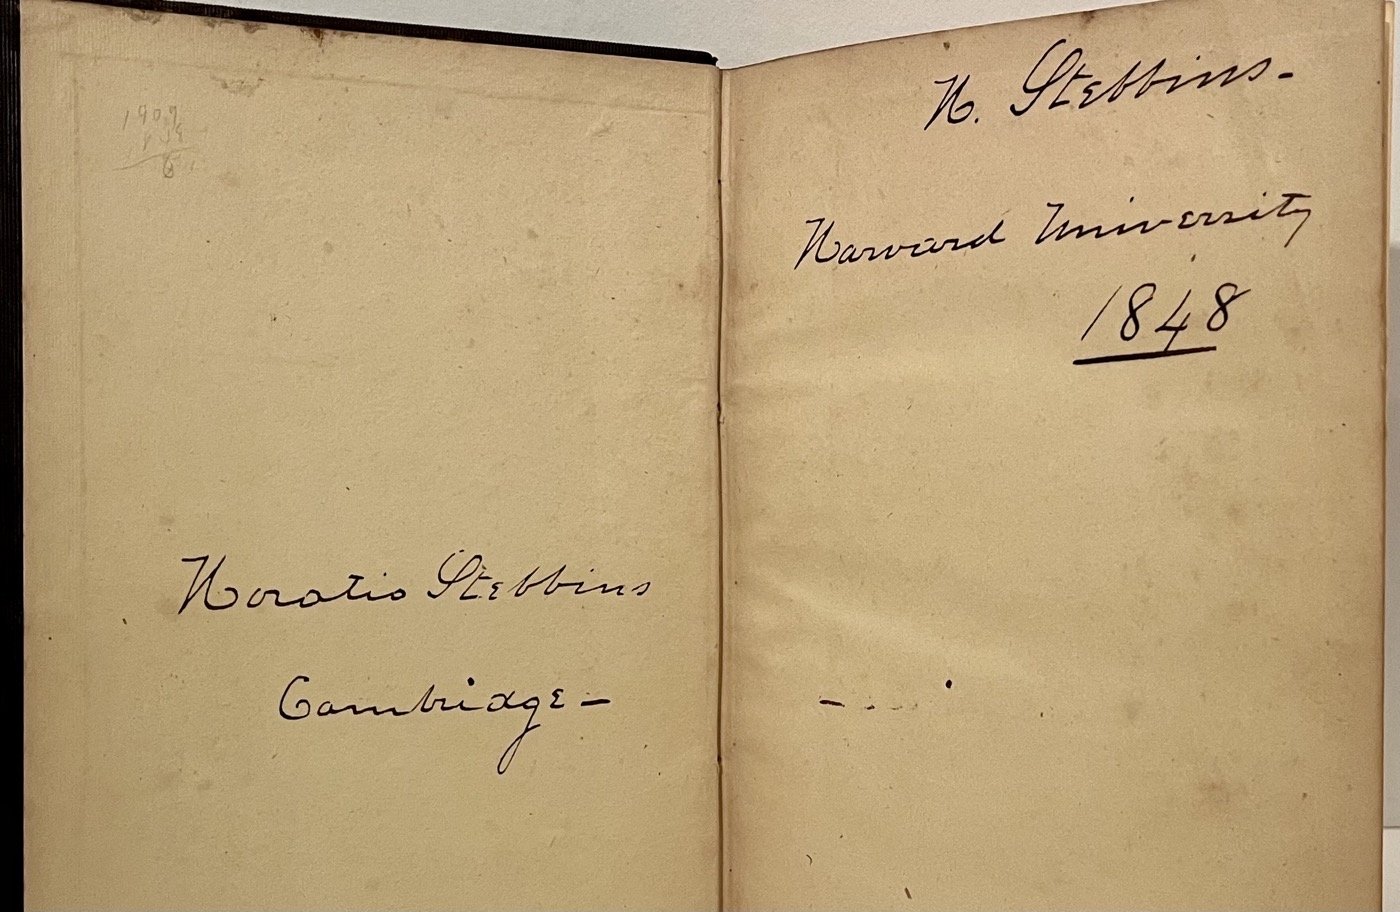 Horatio Stebbins
Cambridge –
H. Stebbins –
Harvard University
1848